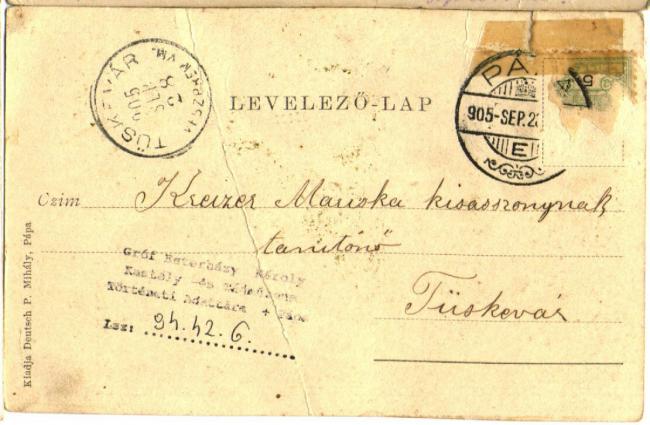 TÜSKEVÁR
905
SEP
PÁ
905-SEP.2
E
LEVELEZŐ-LAP
Czim Kreizer Mariska kisasszonynak
tanitónő
Tüskevár
Gróf Esterházy Károly
Kastély -és
Történeti Adattára +
Lsz: 94.42.6.
Kiadja Deutsch P. Mihály, Pápa